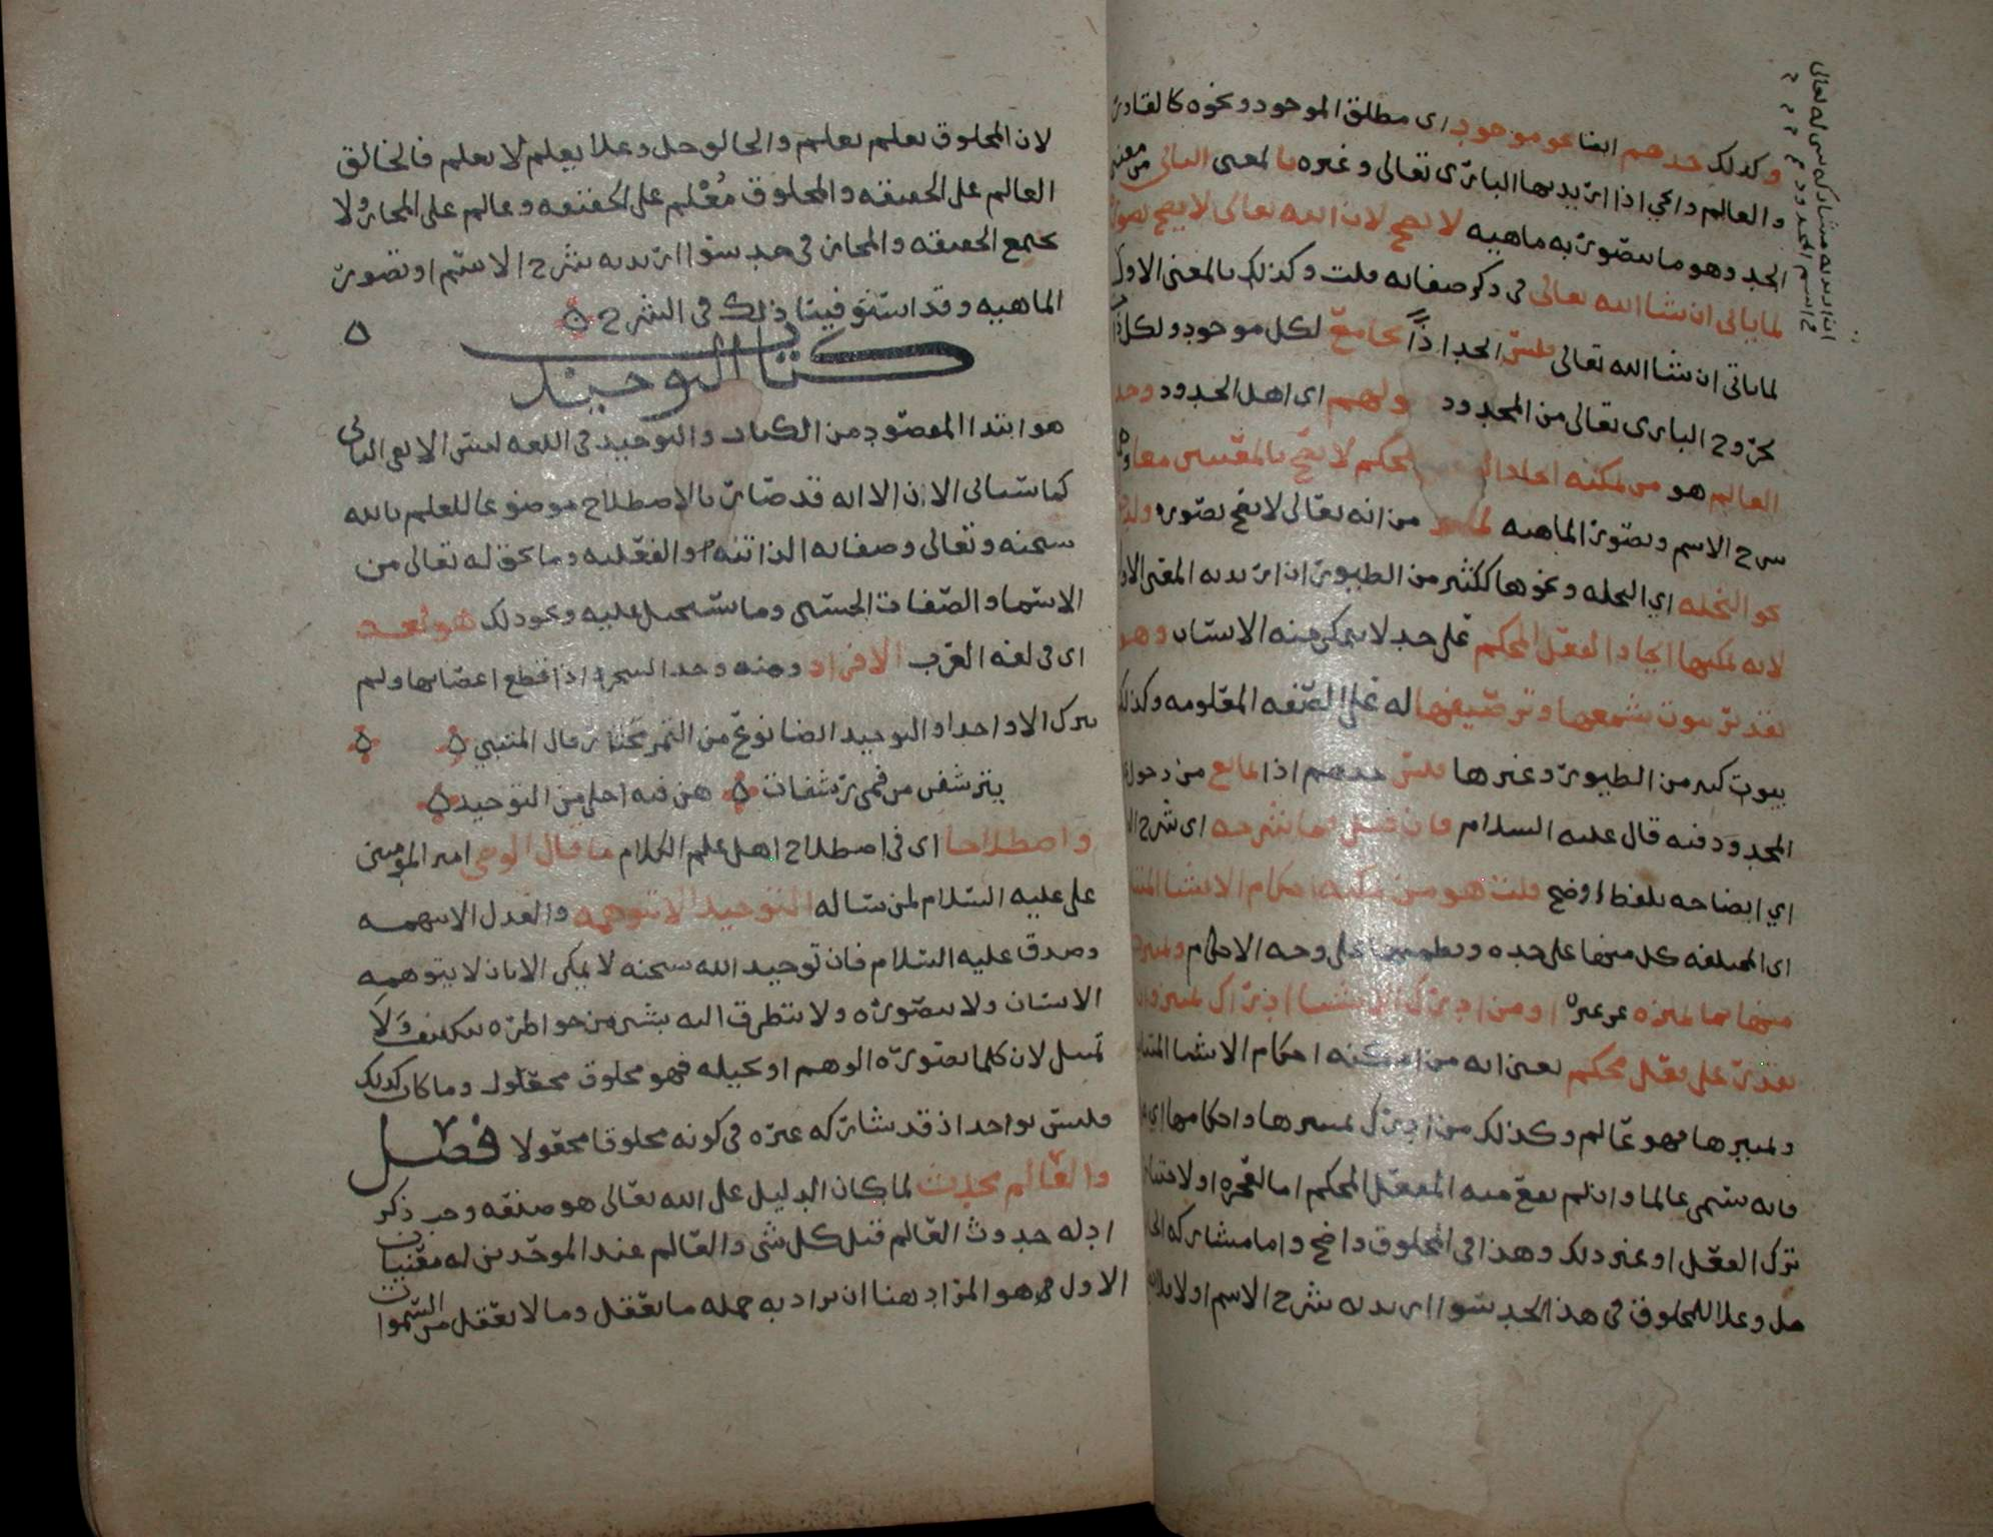 وكذلك حدهم ايضا نحو موجود اى مطلق الموجود ونحوه كالقادر
والعالم والحي اذا اريد بها البارى تعالى وغيره بالمعنى الثانى من معنى
الحد وهو ما يتصور به ماهيه لا يصح لان الله تعالى لا يصح تصوره
لما ياتى ان شا الله تعالى فى ذكر صفاته قلت وكذلك بالمعنى الاول
لما ياتى ان شا الله تعالى فليس الحد اذًا بجامع لكل موجود ولكل
بخروج البارى تعالى من المحدود ولهم اى اهل الحدود وحد
العالم هو من يمكنه المحكم لا يصح بالمعنيين معا
شرح الاسم وتصور الماهيه من انه تعالى لا يصح تصوره
نحو النحله اي النحله ونحوها ككثير من الطيور ان اريد به المعنى الاول
لانه يمكنها ايجاد الفعل المحكم على حد لا يمكن منه الانسان وهو
تقدير بيوت شمعها وترصيفها له على الصفه المعلومه وكذلك
بيوت كثير من الطيور وغيرها فليس حدهم اذا بمانع من دخول
المحدود فيه قال عليه السلام فان قيل فما شرحه اى شرح
اي ايضاحه بلفظ اوضح قلت هو من يمكنه احكام الاشيا
اى المختلفه كل منها على حده ونظمها على وجه الاحكام وتمييز
منها بما يميزه عن غيره او من ادرك الاشيا ادراك تمييز وان
يقدر على فعل محكم يعنى انه من امكنه احكام الاشيا
وتمييزها فهو عالم وكذلك من ادرك تمييزها واحكامها
فانه يسمى عالما وان لم يقع منه الفعل المحكم اما لعجزه او لاختيار
ترك الفعل او غير ذلك وهذا فى المخلوق واضح واما مشاركه
جل وعلا للمخلوق فى هذا الحد سوا اريد به شرح الاسم او لا
لان المخلوق يعلم بعلم والخالق جل وعلا يعلم لا بعلم فالخالق
العالم على الحقيقه والمخلوق مُعْلم على الحقيقه وعالم على المجاز ولا
يجمع الحقيقه والمجاز فى حد سوا اريد به شرح الاسم او تصور
الماهيه وقد استوفينا ذلك فى الشرح
كتاب التوحيد
هو ابتدا المقصود من الكتاب والتوحيد فى اللغه ليس الا نفى الثانى
كما سياتى الان الا انه قد صار بالاصطلاح موضوعا للعلم بالله
سبحنه وتعالى وصفاته الذاتيه والفعليه وما يحق له تعالى من
الاسما والصفات الحسنى وما يستحيل عليه ونحو ذلك هو لغه
اى فى لغه العرب الافراد ومنه وحد الشجره اذا قطع اغصانها ولم
يترك الا واحدا والتوحيد ايضا نوع من التمر يختار قال المتنبي
يترشفن من فمى رشفات هن فيه احلى من التوحيد
واصطلاحا اى فى اصطلاح اهل علم الكلام ما قال الوصى امير المؤمنين
على عليه السلام لمن ساله التوحيد الا تتوهمه والعدل الا تتهمه
وصدق عليه السلام فان توحيد الله سبحنه لا يمكن الا بان لا يتوهمه
الانسان ولا يتصوره ولا يتطرق اليه بشى من خواطره بتكييف ولا
تمثيل لان كلما تصوره الوهم او تخيله فهو مخلوق مجعول وما كان كذلك
فليس بواحد اذ قد شاركه غيره فى كونه مخلوقا مجعولا فصل
والعالم محدث لما كان الدليل على الله تعالى هو صنعه وجب ذكر
ادله حدوث العالم قبل كل شى والعالم عند الموحدين له معنيان
الاول هو المراد هنا ان يراد به جمله ما يعقل وما لا يعقل من السموات